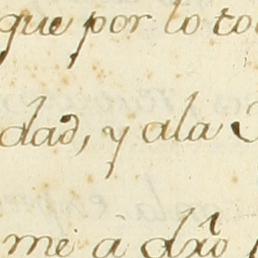 que por lo to
dad, y ala
me á dxo